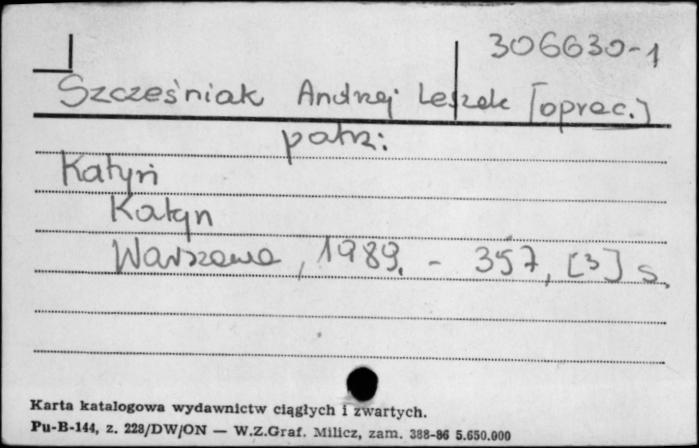 306630-1
Szcześniak Andrzej Leszek [oprac.]
patrz:
Katyń
Katyń
Warszawa, 1989. - 357, [3] s.
Karta katalogowa wydawnictw ciągłych i zwartych.
Pu-B-144, z. 228/DW/ON — W.Z.Graf. Milicz, zam. 388-86 5.650.000